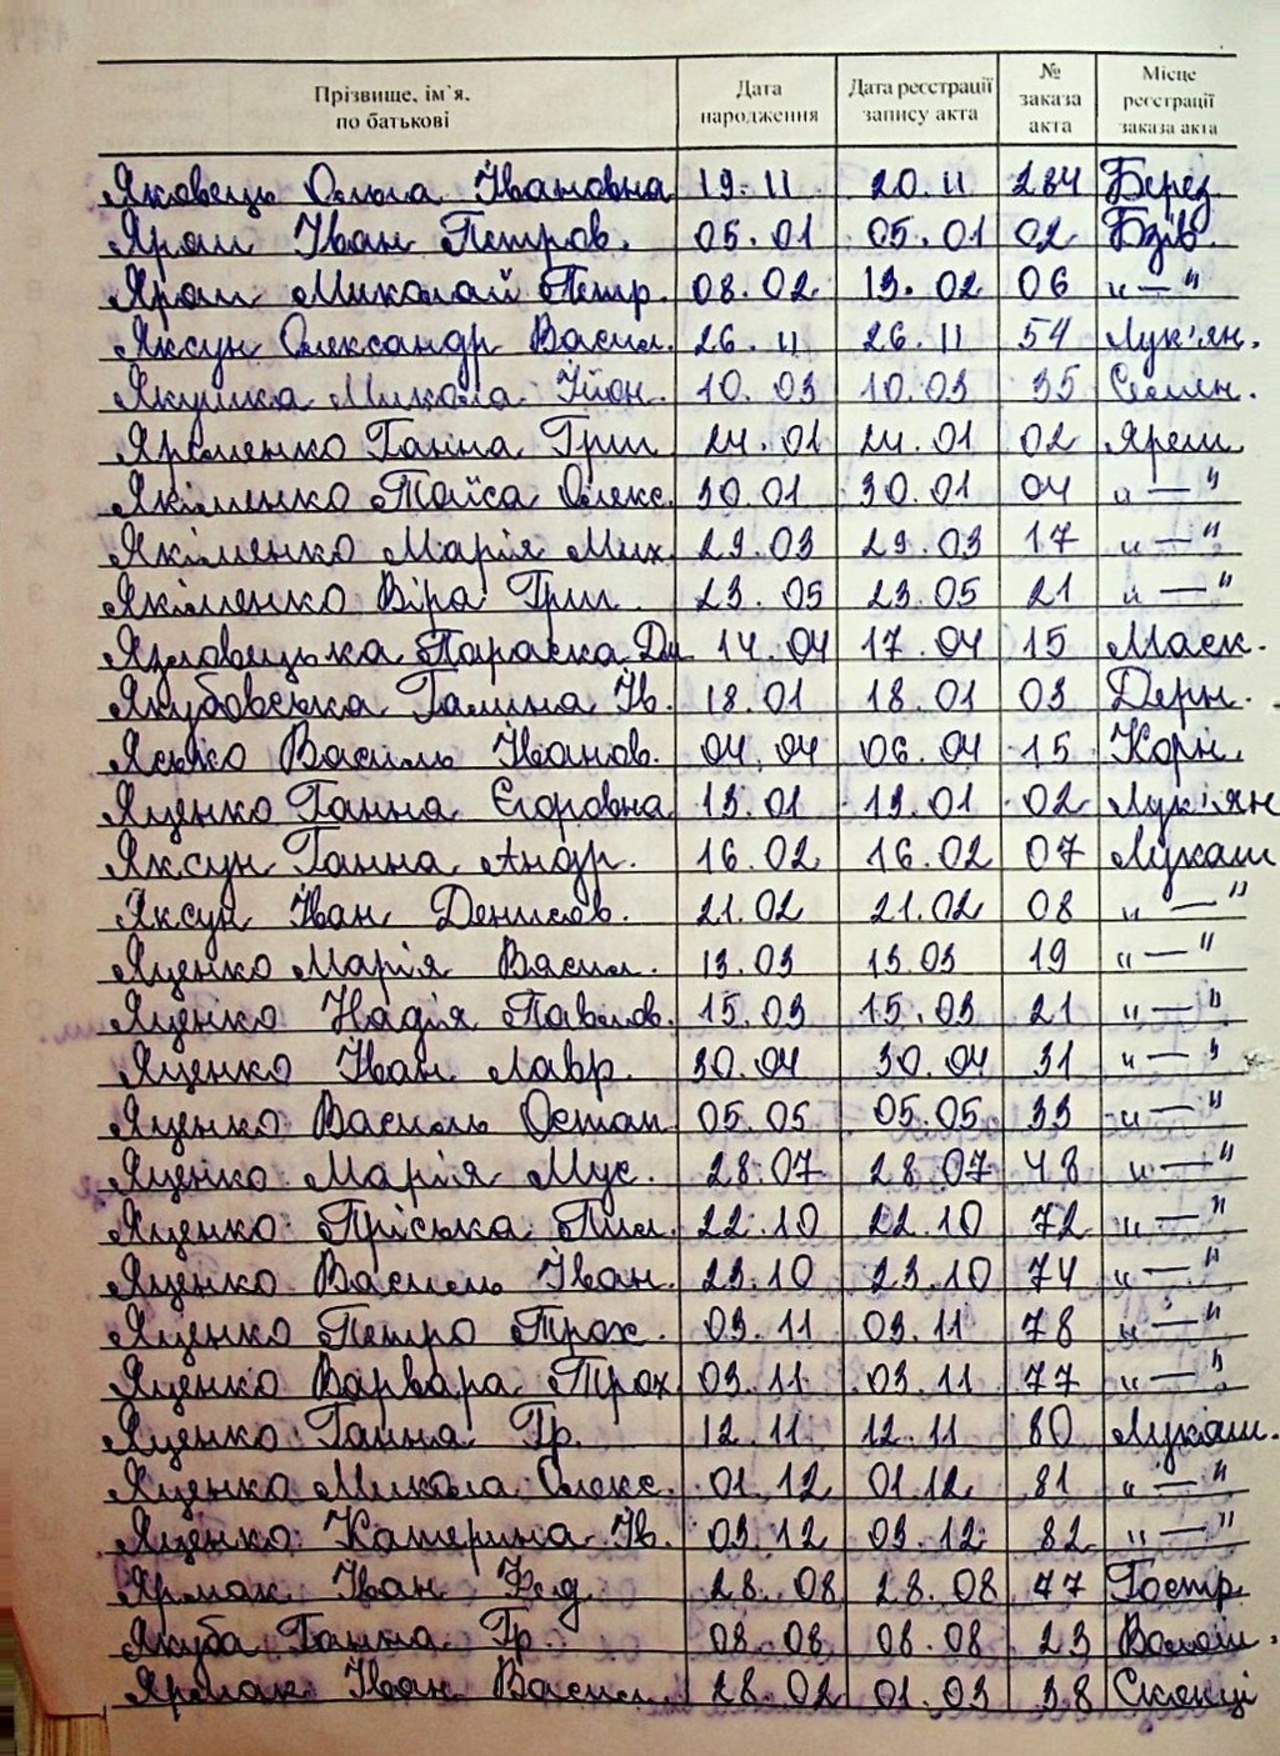 Прізвище, ім`я, по батькові Дата народження Дата реєстрації запису акта № заказа акта Місце реєстрації заказа акта
Яковець Ольга Івановна 19.11 20.11 284 Берез.
Ярош Іван Петров. 05.01 05.01 02 Бзів.
Ярош Миколай Петр. 08.02 13.02 06 „—“
Яксун Олександр Васил. 26.11 26.11 54 Лук'ян.
Якушка Микола Йон. 10.03 10.03 35 Семен.
Яременко Ганна Григ 24.01 24.01 02 Яреш.
Якіменко Таїса Олекс. 30.01 30.01 04 „—“
Якіменко Марія Мих. 29.03 29.03 17 „—“
Якіменко Віра Григ. 23.05 23.05 21 „—“
Язловецька Параска Дм 14.04 17.04 15 Маск.
Якубовська Галина Ів. 18.01 18.01 03 Дерн.
Яська Василь Іванов. 04.04 06.04 15 Корн.
Яценко Ганна Єгоровна 13.01 13.01 02 Лук'ян
Яксун Ганна Андр. 16.02 16.02 07 Лукаш
Яксун Іван Денисов. 21.02 21.02 08 „—“
Яценко Марія Васил. 13.03 13.03 19 „—“
Яценко Надія Павлов. 15.03 15.03 21 „—“
Яценко Іван Лавр. 30.04 30.04 31 „—“
Яценко Василь Остап 05.05 05.05 33 „—“
Яценко Марія Мус. 28.07 28.07 48 „—“
Яценко Пріська Пил. 22.10 22.10 72 „—“
Яценко Василь Іван. 23.10 23.10 74 „—“
Яценко Петро Трох. 03.11 03.11 78 „—“
Яценко Варвара Трох 03.11 03.11 77 „—“
Яценко Ганна Гр. 12.11 12.11 80 Лукаш.
Яценко Микола Олекс. 01.12 01.12 81 „—“
Яценко Катерина Ів. 03.12 03.12 82 „—“
Ярмак Іван Фед 28.08 28.08 77 Гостр.
Якуба Ганна Гр. 08.08 08.08 23 Волош.
Ярмак Іван Васил. 28.02 01.03 38 Скопці